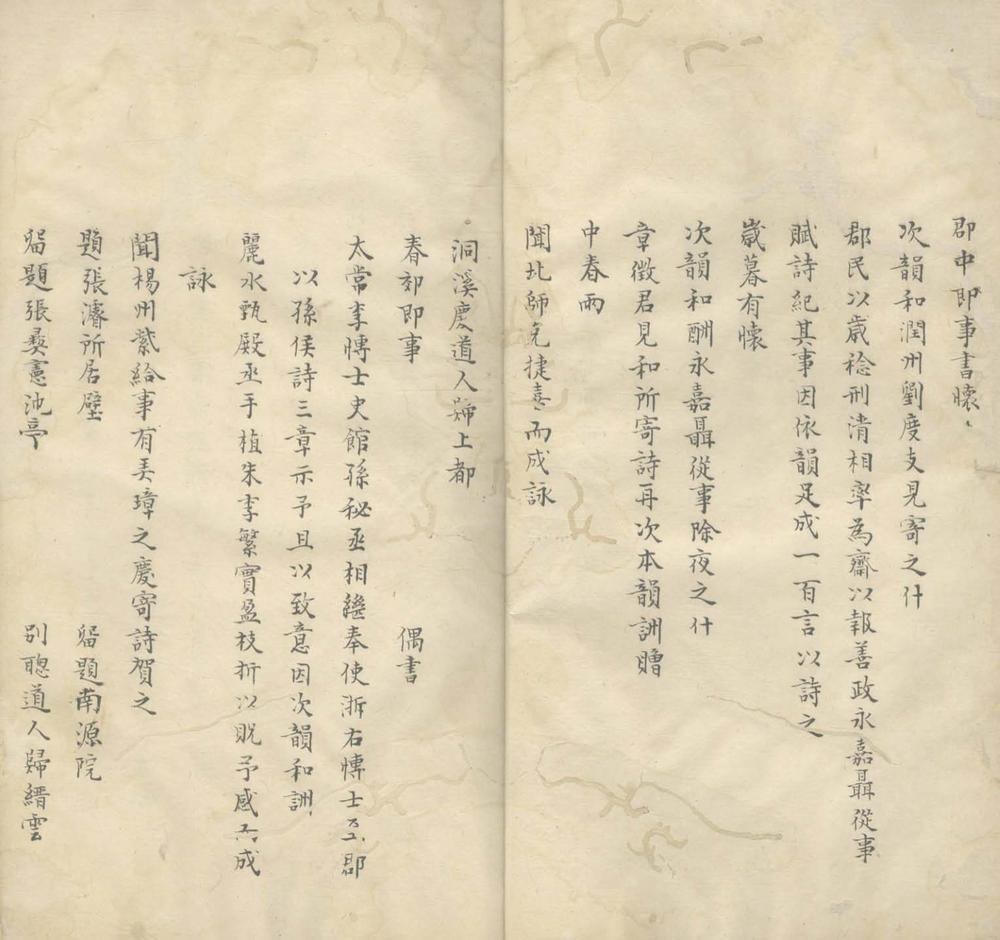 郡中即事書懷
次韻和潤州劉度支見寄之什
郡民以歲稔刑清相率為齋以報善政永嘉聶從事
賦詩紀其事因依韻足成一百言以詩之
歲暮有懷
次韻和酬永嘉聶從事除夜之什
章徵君見和所寄詩再次本韻詶贈
中春雨
聞北師克捷喜而成詠
洞溪慶道人歸上都
春郊即事 偶書
太常李愽士史館孫秘丞相繼奉使浙右愽士至郡
以孫侯詩三章示予且以致意因次韻和詶
麗水甄殿丞手植朱李繁實盈枝折以貺予感而成
詠
聞楊州紫給事有弄璋之慶寄詩賀之
題張濬所居壁 留題南源院
留題張彝憲池亭 別聰道人歸縉雲